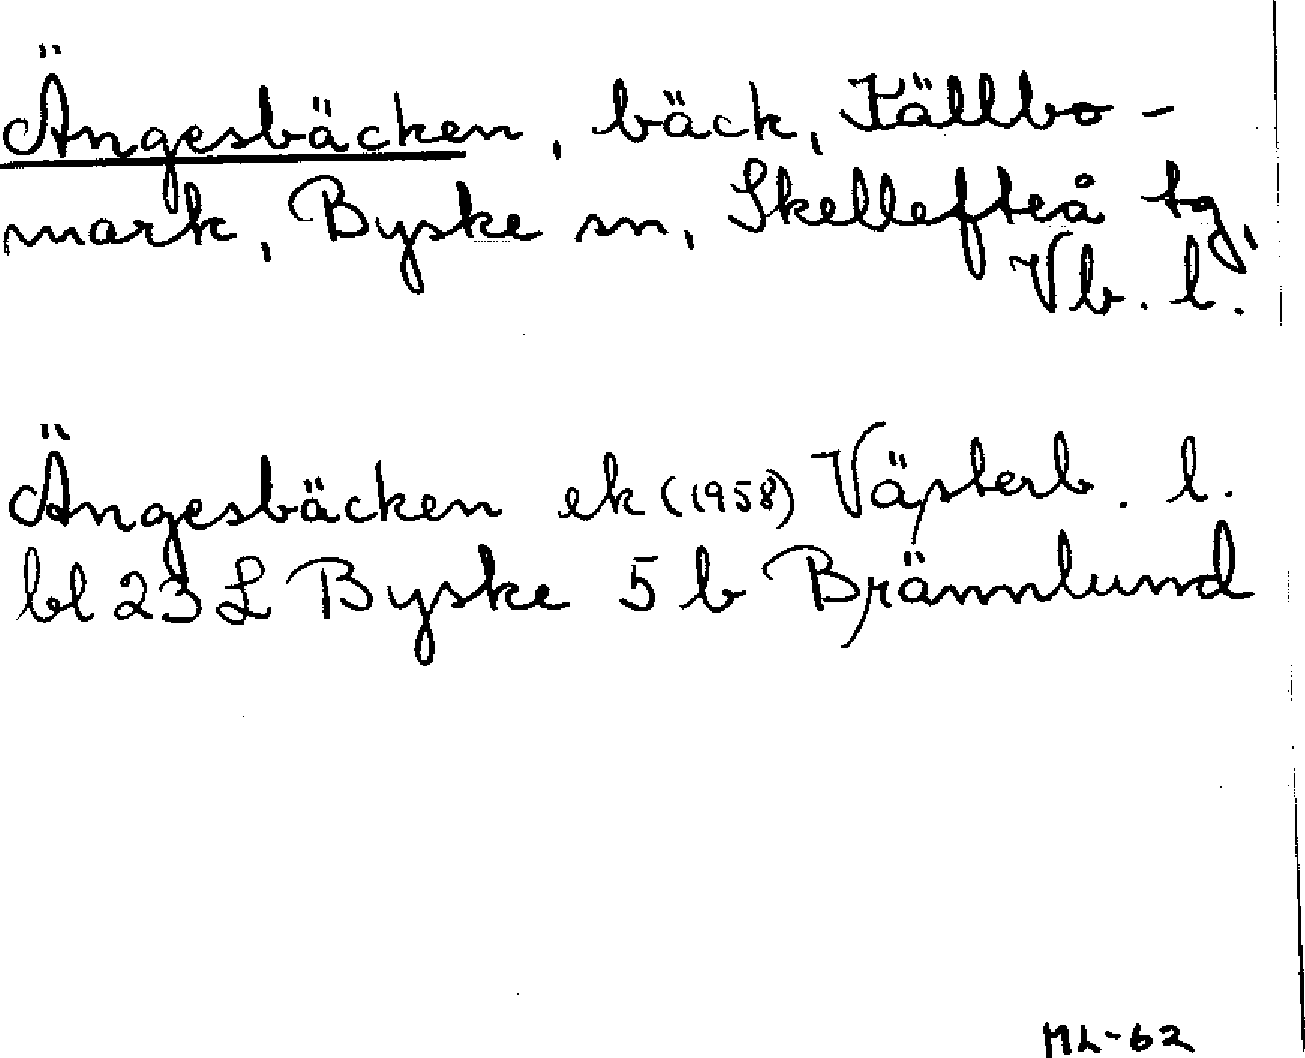 Ängesbäcken, bäck, Källbo-
mark, Byske sn, Skellefteå tg,
Vb. l.
Ängesbäcken ek (1958) Västerb. l.
bl 23 L Byske 5 b Brännlund
ML-62